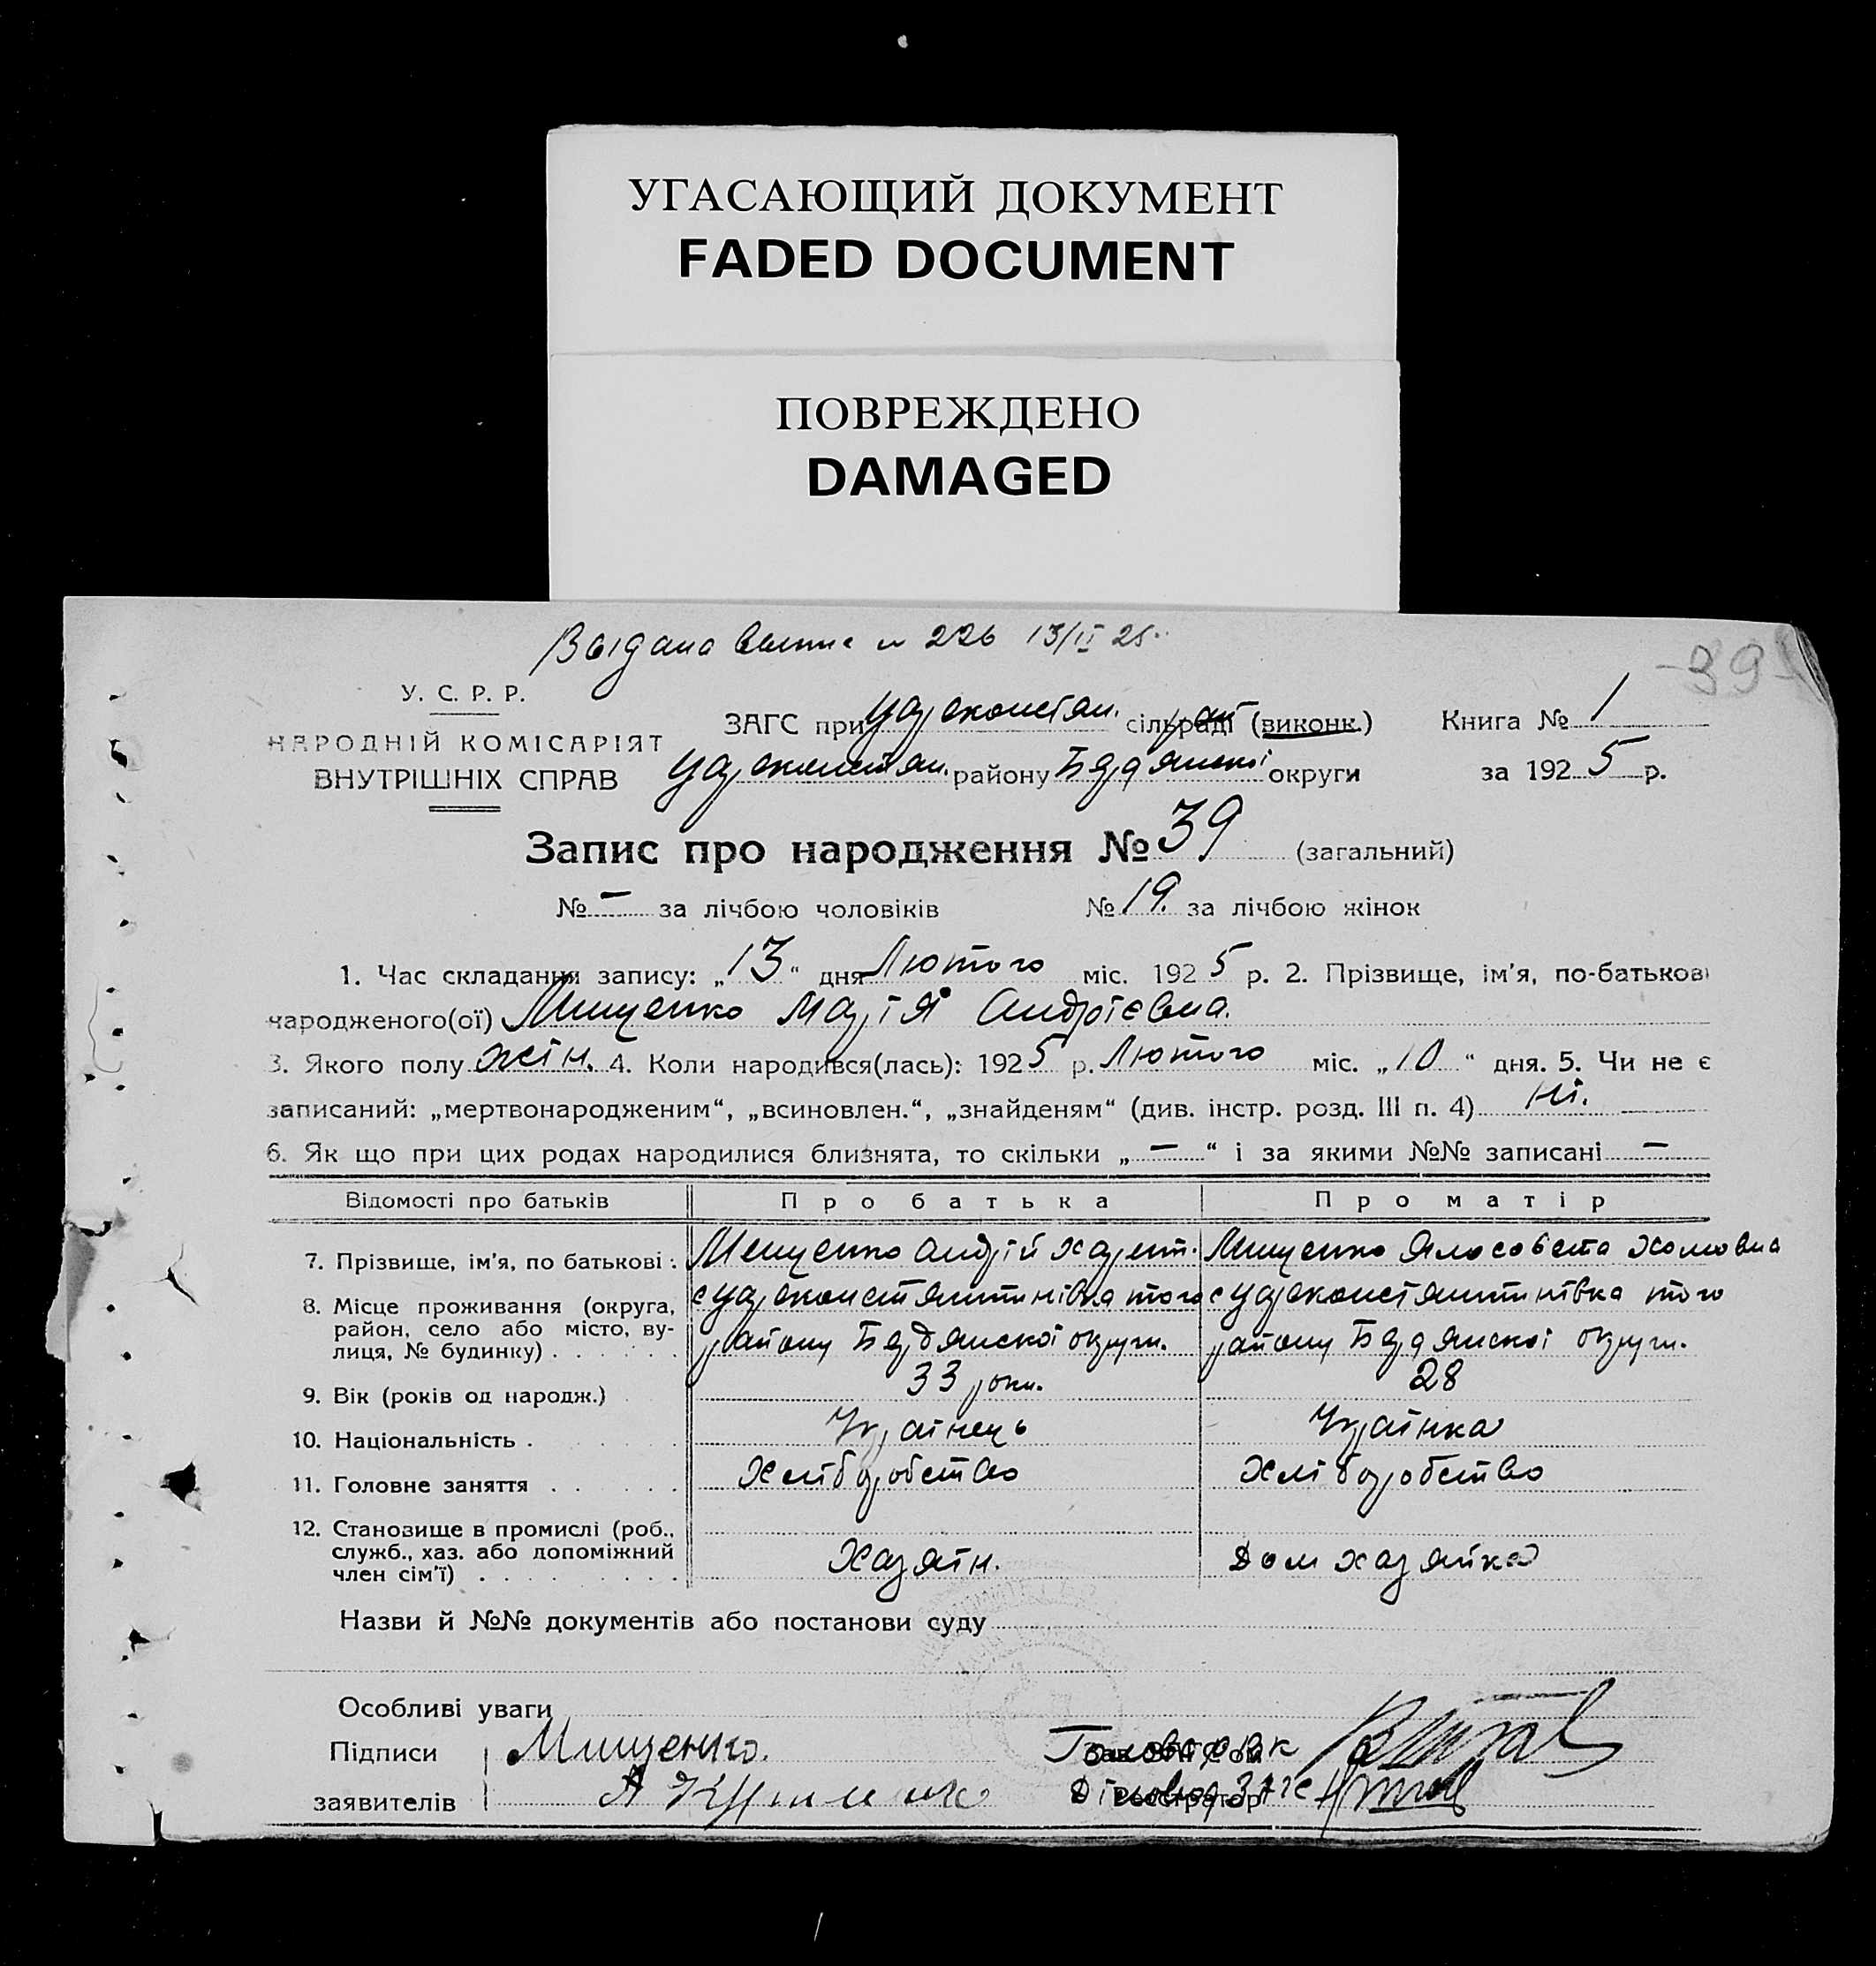 УГАСАЮЩИЙ ДОКУМЕНТ
FADED DOCUMENT
ПОВРЕЖДЕНО
DAMAGED
Видана № 226 13/II 25
39
У. С. Р. Р.
НАРОДНІЙ КОМІСАРІЯТ
ВНУТРІШНІХ СПРАВ
ЗАГС при Цареконстан. сільраді (виконк.) Книга № 1
Цареконстан. району Бердянскої округи за 1925 р.
Запис про народження № 39 (загальний)
№ — за лічбою чоловіків № 19. за лічбою жінок
1. Час складання запису: „13“ дня Лютого міс. 1925 р. 2. Прізвище, ім’я, по-батькові
народженого(ої) Мищенко Марія Андрієвна.
3. Якого полу жін. 4. Коли народився(лась): 1925 р. Лютого міс. „10“ дня. 5. Чи не є
записаний: „мертвонародженим“, „всиновлен.“, „знайденям“ (див. інстр. розд. III п. 4) ні.
6. Як що при цих родах народилися близнята, то скільки „—“ і за якими №№ записані —
Відомості про батьків Про батька Про матір
7. Прізвище, ім’я, по батькові: Мищенко Андрій Мищенко Хомовна
8. Місце проживання (округа, район, село або місто, вулиця, № будинку) с Цареконстянтинівка того с Цареконстянтинівка того
району Бердянскої округи. району Бердянскої округи.
9. Вік (років од народж.) 33 роки. 28
10. Національність Українець Українка
11. Головне заняття Хліборобство Хліборобство
12. Становище в промислі (роб., служб., хаз. або допоміжний член сім’ї) Хазяїн. Дом хазяйка
Назви й №№ документів або постанови суду
Особливі уваги
Підписи Мищенко.
заявителів